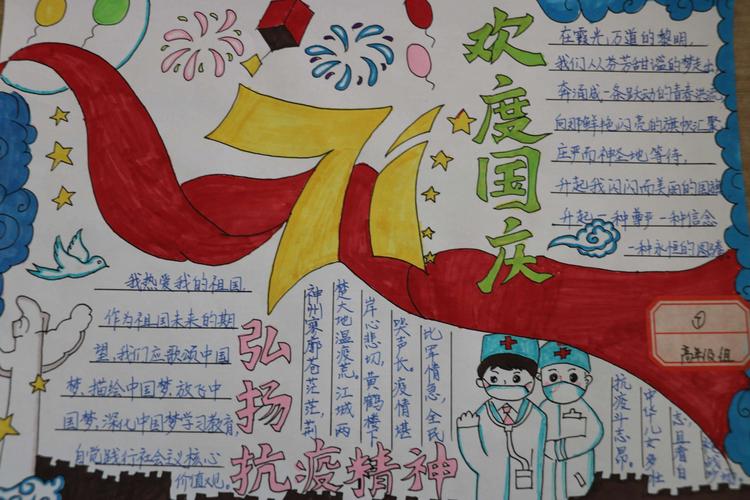 欢度国庆
71
在霞光万道的黎明,
我们从芬芳甜谧的梦走出
奔涌成一条跃动的青春洪流
向那鲜艳闪亮的旗帜汇聚
庄严而神圣地等待,
升起我闪闪而美丽的国旗
升起一种尊严一种信念
一种永恒的图腾
我热爱我的祖国,
作为祖国未来的期
望,我们应歌颂中国
梦,描绘中国梦,放飞中
国梦,深化中国梦学习教育,
自觉践行社会主义核心
价值观。
弘扬
抗疫精神
神州寥廓苍茫茫,荆
楚大地温疫荒。江城两
岸心悲切,黄鹤楼下
哭声长。疫情堪
比军情急,全民
抗疫斗志昂。
中华儿女多壮
志,且看白
①
高年级组